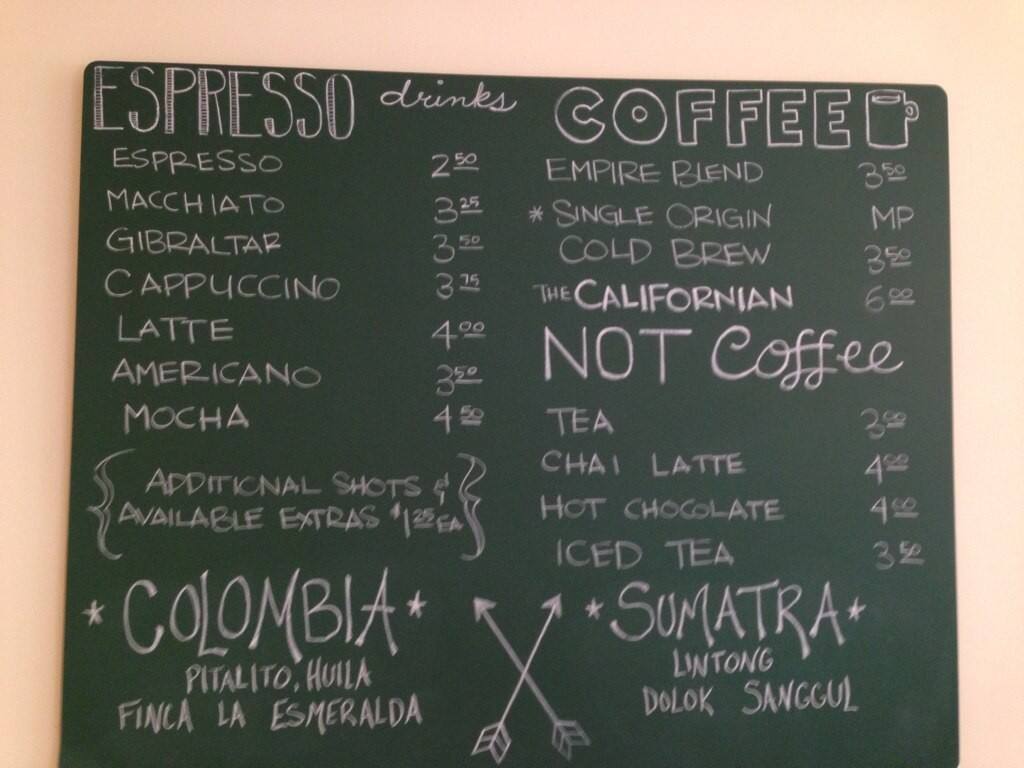 ESPRESSO drinks
ESPRESSO 2.50
MACCHIATO 3.25
GIBRALTAR 3.50
CAPPUCCINO 3.75
LATTE 4.00
AMERICANO 3.50
MOCHA 4.50
{ADDITIONAL SHOTS &
AVAILABLE EXTRAS $1.25 EA}
COFFEE
EMPIRE BLEND 3.50
* SINGLE ORIGIN MP
COLD BREW 3.50
THE CALIFORNIAN 6.00
NOT Coffee
TEA 3.00
CHAI LATTE 4.00
HOT CHOCOLATE 4.00
ICED TEA 3.50
* COLOMBIA *
PITALITO, HUILA
FINCA LA ESMERALDA
* SUMATRA *
LINTONG
DOLOK SANGGUL